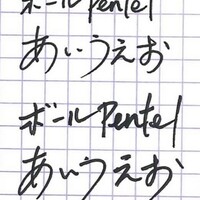 ボールPentel
あいうえお
ボールPentel
あいうえお